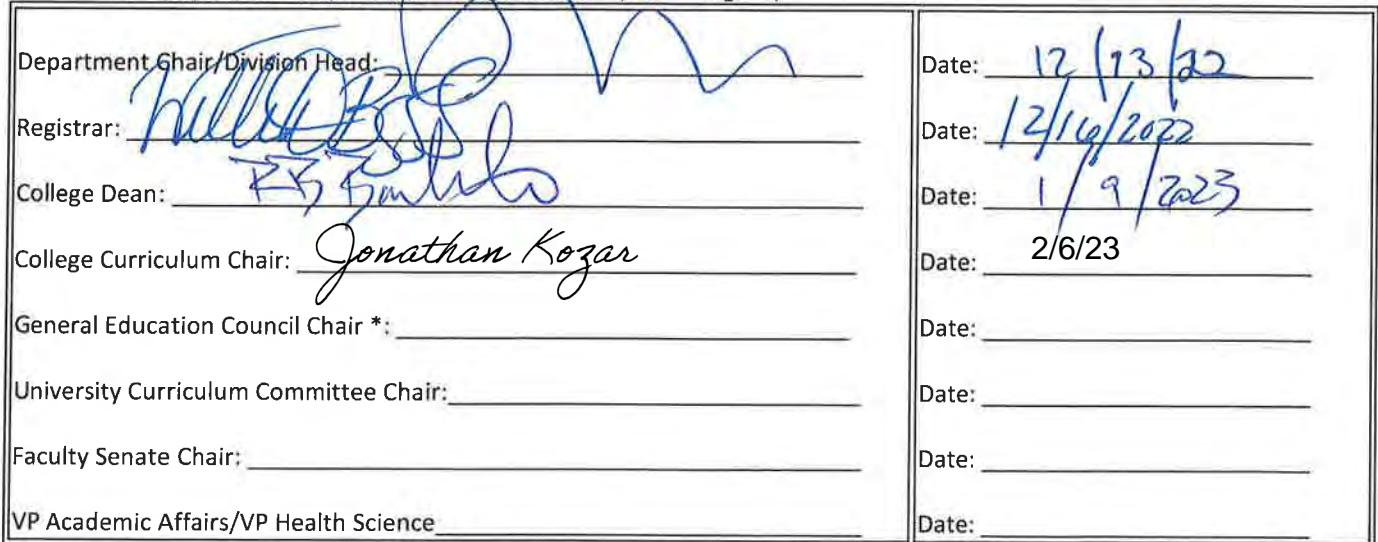 Department Chair/Division Head: Date: 12/13/22
Registrar: Date: 12/16/2022
College Dean: Date: 1/9/2023
College Curriculum Chair: Jonathan Kozar Date: 2/6/23
General Education Council Chair *: Date:
University Curriculum Committee Chair: Date:
Faculty Senate Chair: Date:
VP Academic Affairs/VP Health Science Date: